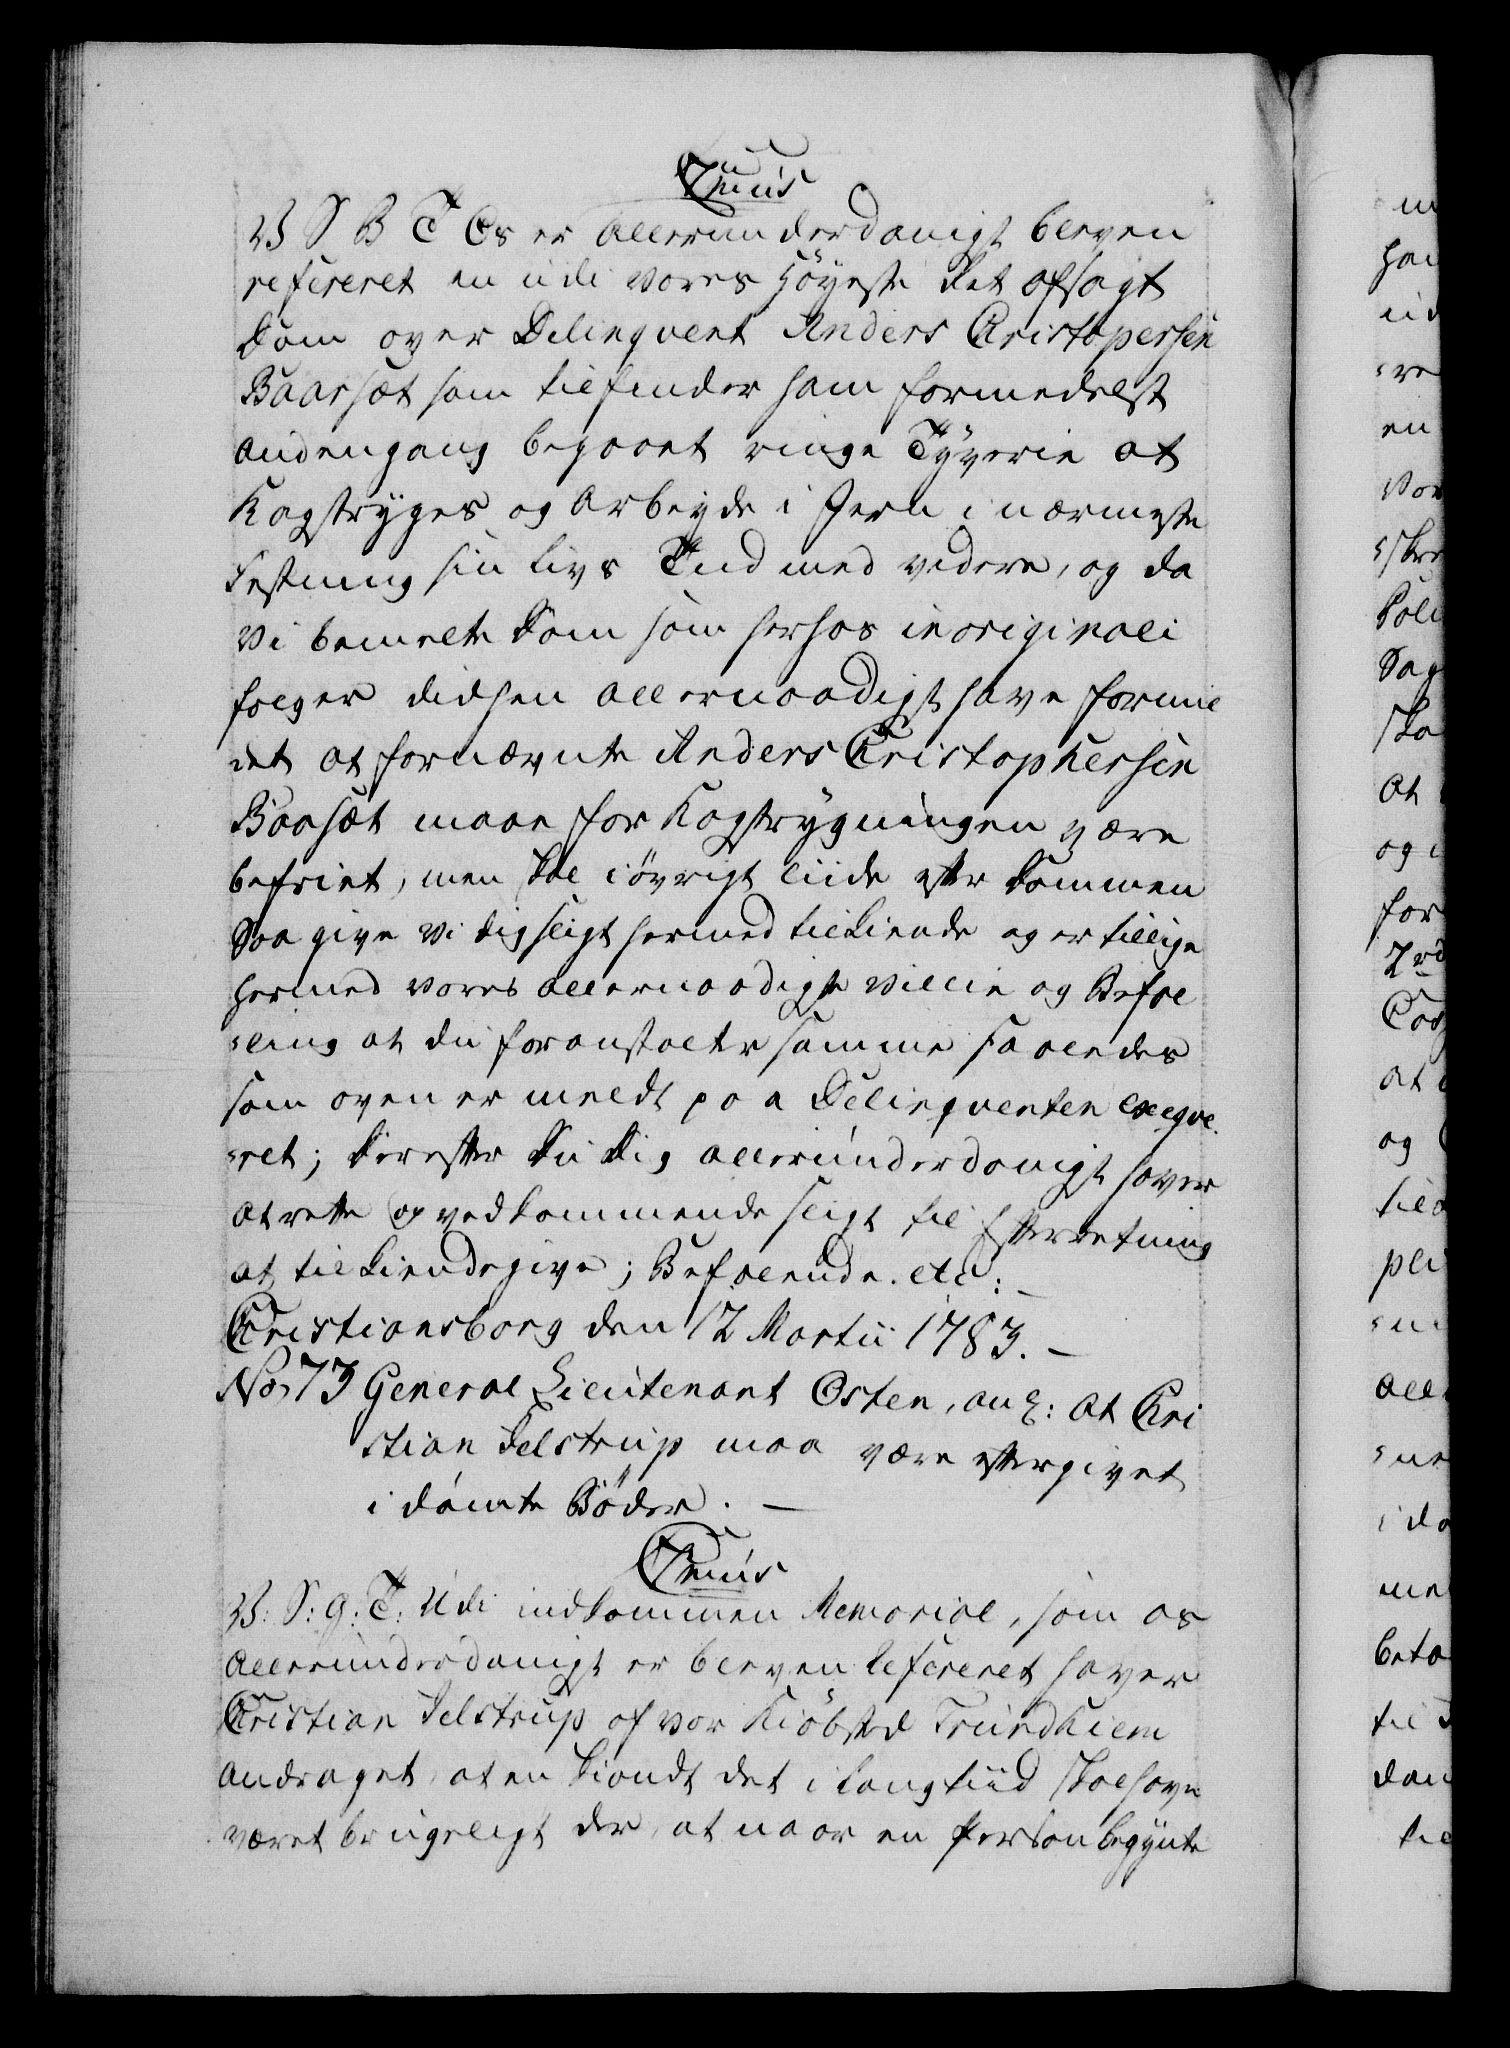 Cr: 7mus
V S B T Os er allerunderdanigst bleven
refereret en udi vores Höyeste Ret afsagt
Dom over Delinqvent Anders Cristopersen
Baarsæt som tilfinder ham formedelst
andengang begaaet ringe Tyverie at
Kagstryges og arbeyde i Jern i nærmeste
Festning sin Livs Tid med videre, og da
Vi bemelte Dom som herhos in originali
folger didhen allernaadigst have formil
det at fornævnte Anders Cristophersen
Baasæt maae for Kagstrygningen være
befriet, men skal i övrigt liide efter Dommen
Saa give Vi dig sligt hermed tilkiende og er tillige
hermed vores allernaadigste Villie og Befal
-ling at du foranstalter samme saaledes
som oven er meldt paa Delinqventen exeqve
-ret; Derefter Du Dig allerunderdanigst haver
at rette og vedkommende sligt til Efterretning
at tilkiendegive; Befalende. etc:
Cristiansborg den 12 Martii 1783. –
No 73 General Lieutenant Osten, ang: at Cri
stian Selstrup maa være eftergivet
i dömte Böder. –
C 7mus
V: S: G: T: Udi indkommen Memorial, som os
allerunderdanigst er bleven refereret haver
Cristian Selstrup af vor Kiöbsted Trundhiem
andraget, at en Tiendt det i lang tiid skal have
været brugeligt der, at naar en Person begynte